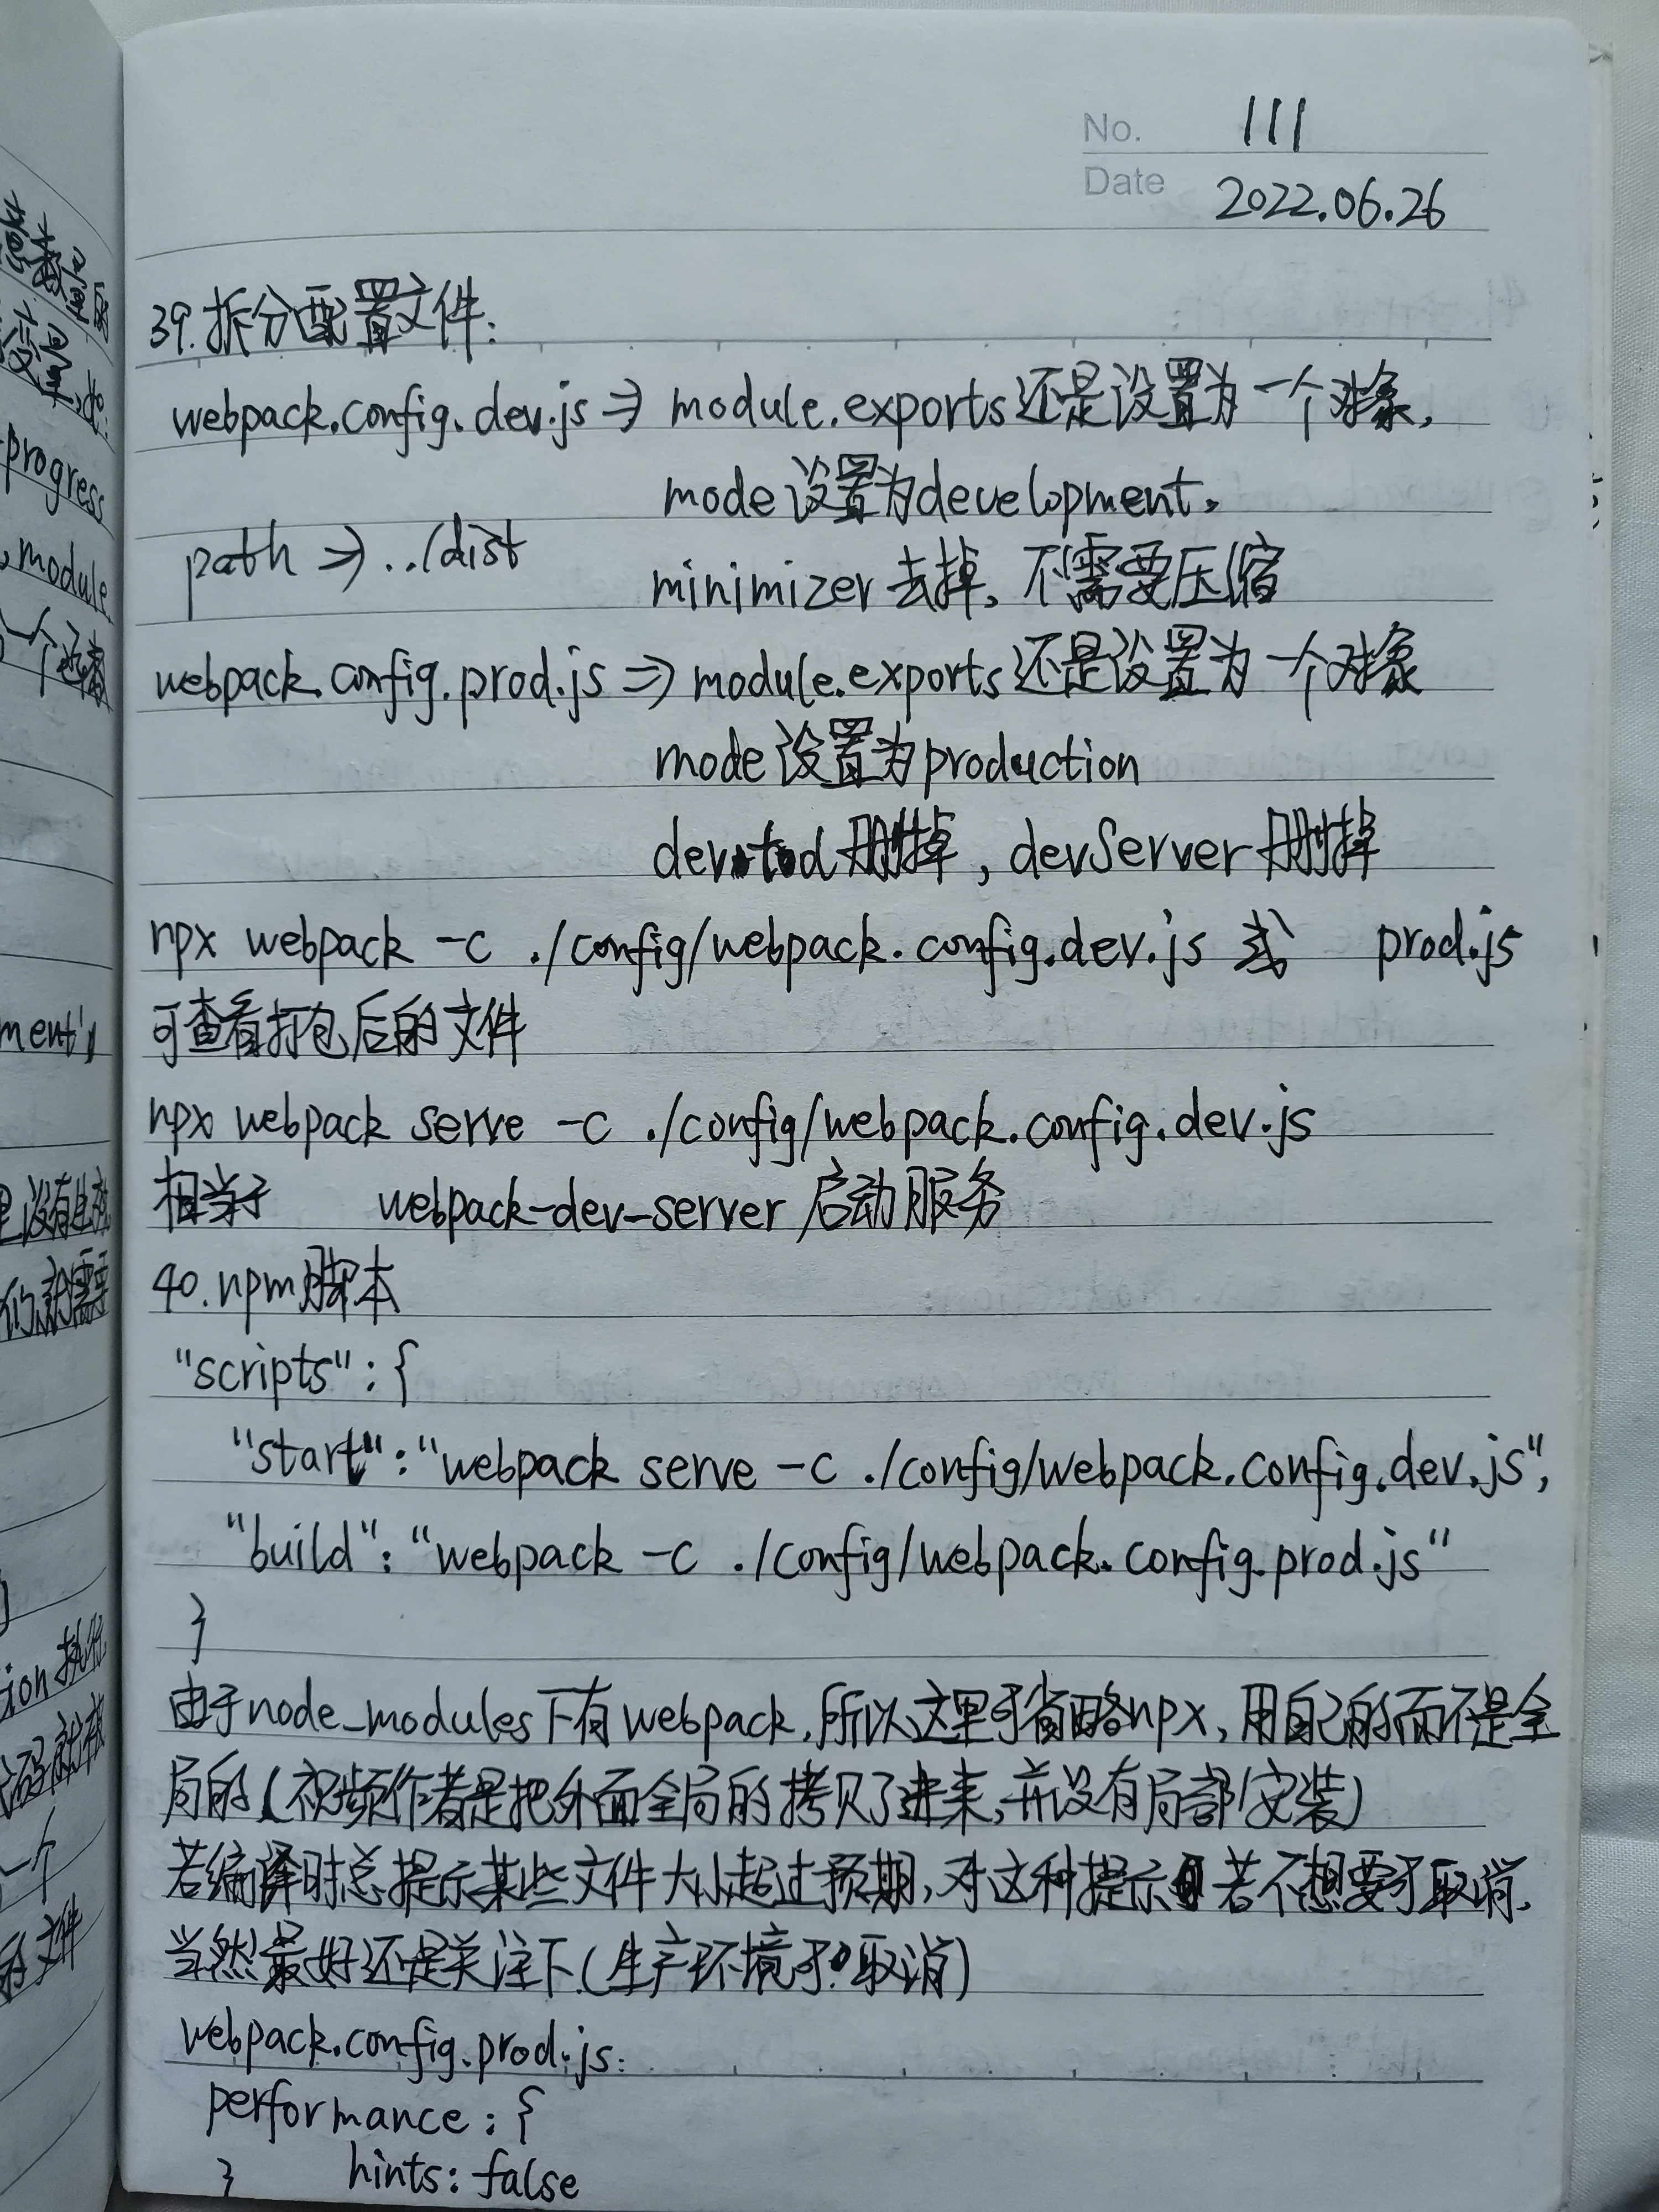 No. 111
Date 2022.06.26
39.拆分配置文件:
webpack.config.dev.js => module.exports还是设置为一个对象,
mode设置为development,
path => ../dist
minimizer去掉,不需要压缩
webpack.config.prod.js => module.exports还是设置为一个对象
mode设置为production
devtool删掉,devServer删掉
npx webpack -c ./config/webpack.config.dev.js 或 prod.js
可查看打包后的文件
npx webpack serve -c ./config/webpack.config.dev.js
相当于 webpack-dev-server 启动服务
40.npm脚本
"scripts":{
"start":"webpack serve -c ./config/webpack.config.dev.js",
"build":"webpack -c ./config/webpack.config.prod.js"
}
由于node_modules下有webpack,所以这里可省略npx,用自己的而不是全
局的(视频作者是把外面全局的拷贝了进来,并没有局部安装)
若编译时总提示某些文件大小超过预期,对这种提示若不想要可取消,
当然最好还是关注下(生产环境可取消)
webpack.config.prod.js:
performance:{
hints:false
}
progress
module
一个函数
ment'
里没有
们就需要
ion执行
码就被
一个
的文件